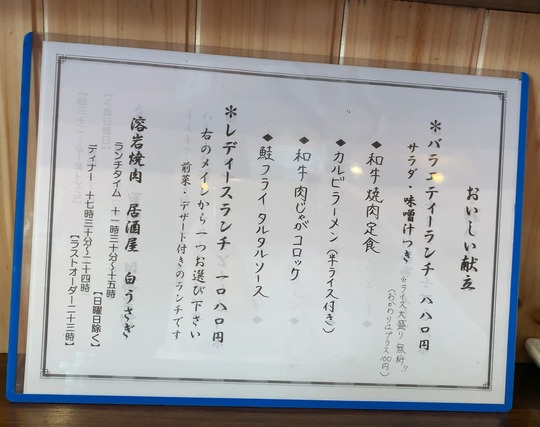 おいしい献立
＊バラエティーランチ 八八〇円
サラダ・味噌汁つき ※ライス大盛り無料!!
(おかわりはプラス100円)
◆和牛焼肉定食
◆カルビラーメン(半ライス付き)
◆和牛肉じゃがコロッケ
◆鮭フライ タルタルソース
＊レディースランチ 一〇八〇円
右のメインから一つお選び下さい
前菜・デザート付きのランチです
溶岩焼肉 居酒屋 白うさぎ
ランチタイム 十一時三十分～十五時
【日曜日除く】
ディナー 十七時三十分～二十四時
【ラストオーダー二十三時】